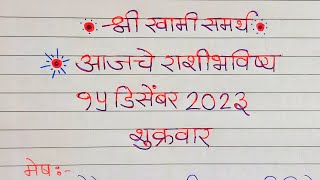 -श्री स्वामी समर्थ
आजचे राशीभविष्य
१५ डिसेंबर 202३
शुक्रवार
मेष:-